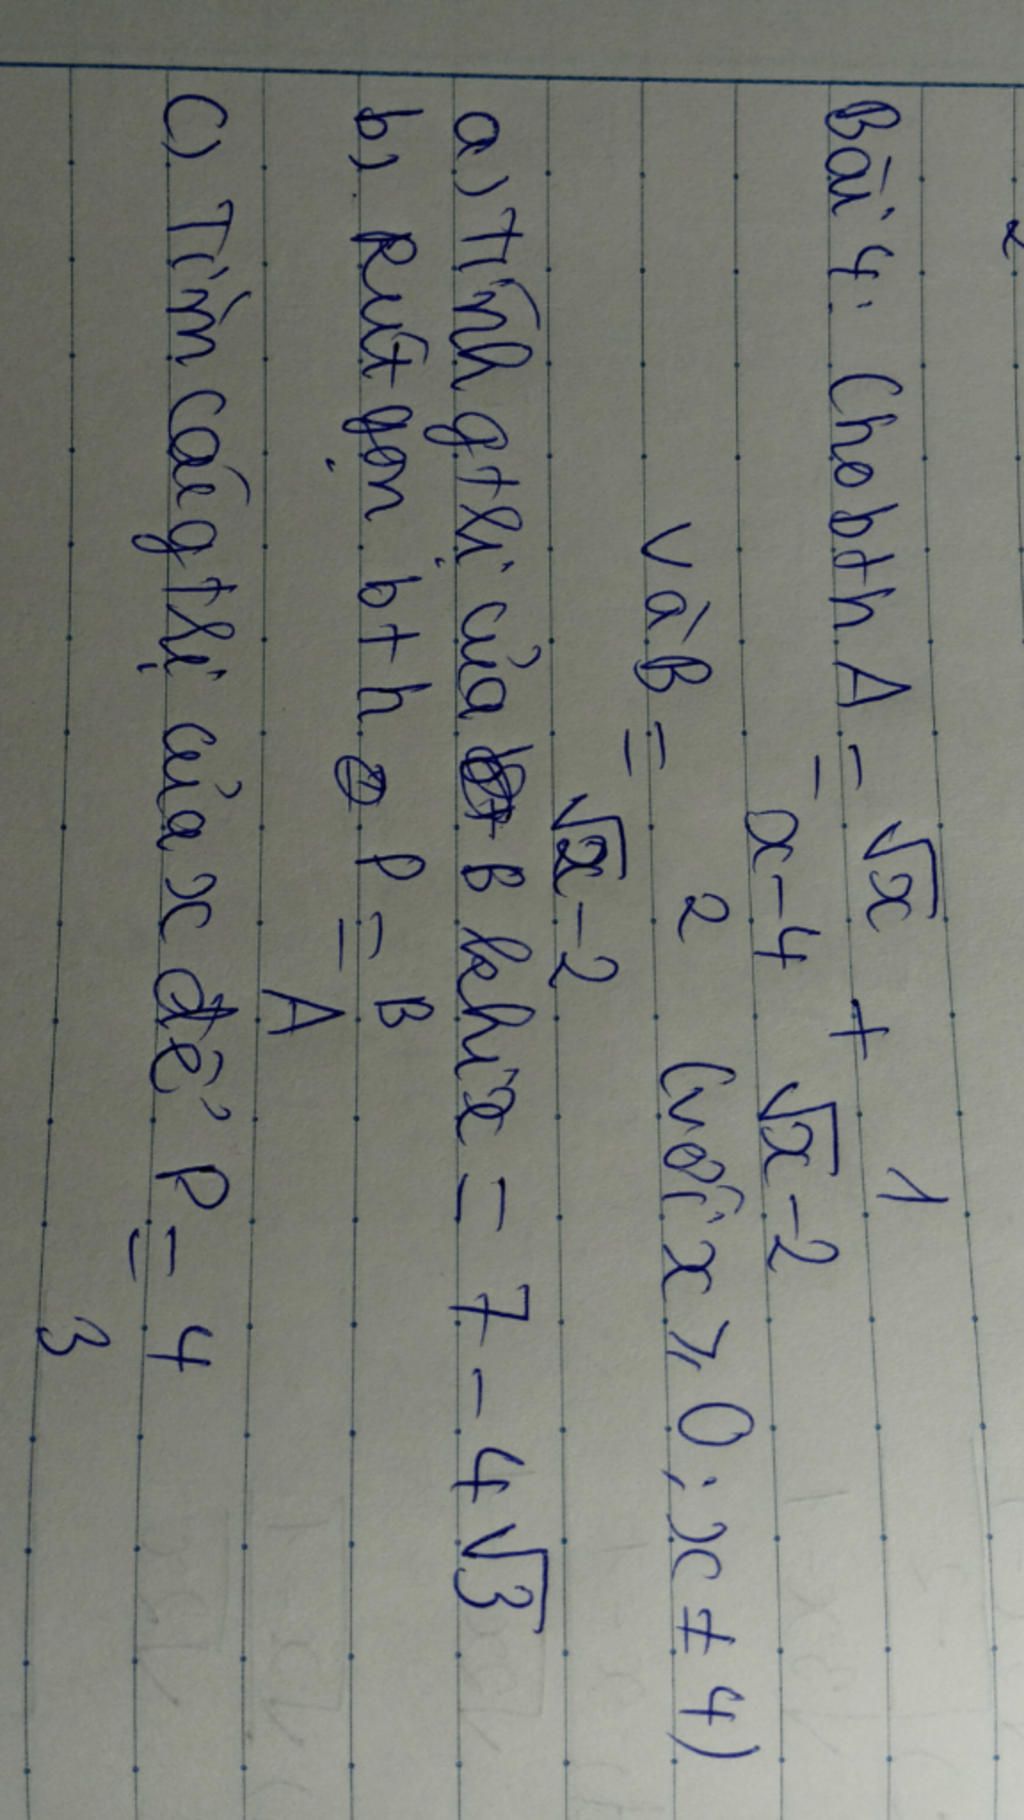 Bài 4: Cho bth A = √x / x-4 + 1 / √x-2
và B = 2 / √x-2 (với x ≥ 0; x ≠ 4)
a) Tính gthị của B khi x = 7 - 4√3
b) Rút gọn bth P = B / A
c) Tìm các gthị của x để P = 4 / 3